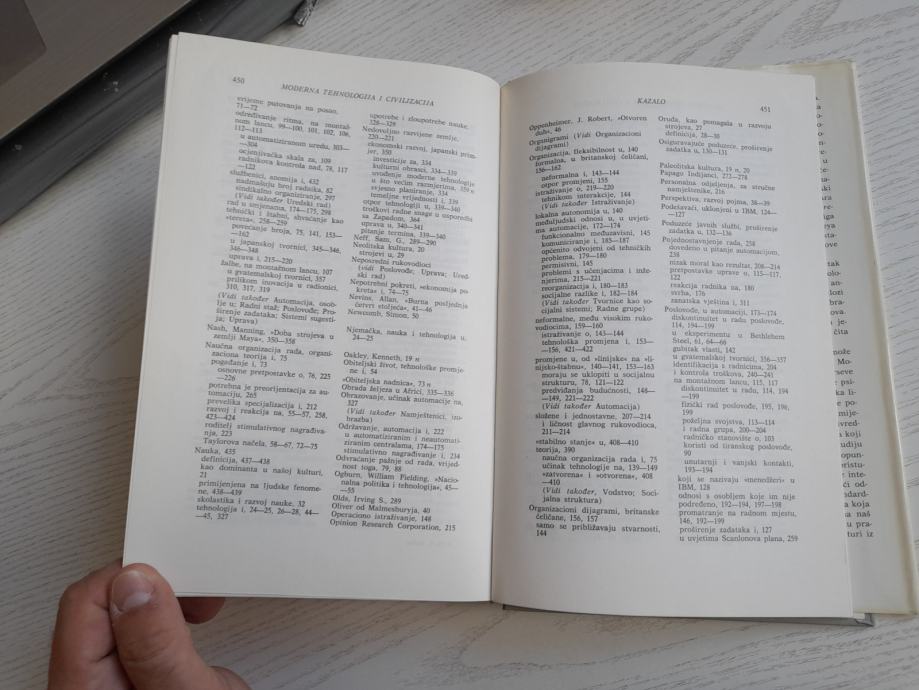 450
MODERNA TEHNOLOGIJA I CIVILIZACIJA
vrijeme putovanja na posao,
71—72
određivanje ritma, na montaž-
nom lancu, 99—100, 101, 102, 106,
112—113
u automatiziranom uredu, 303—
—304
ocjenjivačka skala za, 109
radnikova kontrola nad, 78, 117
—122
službenici, anomija i, 432
nadmašuju broj radnika, 82
sindikalno organiziranje, 297
(Vidi također Uredski rad)
rad u smjenama, 174—175, 298
tehnički i štabni, shvaćanje kao
»tereta«, 258—259
povećanje broja, 75, 141, 153—
—162
u japanskoj tvornici, 345—346,
346—348
uprava i, 215—220
žalbe, na montažnom lancu, 107
u gvatemalskoj tvornici, 357
prilikom inovacija u radionici,
310, 317, 319
(Vidi također Automacija, osob-
lje u; Radni staž; Poslovođe; Pro-
širenje zadataka; Sistemi sugesti-
ja; Uprava)
Nash, Manning, »Doba strojeva u
zemlji Maya«, 350—358
Naučna organizacija rada, organi-
zaciona teorija i, 75
pogađanje i, 73
osnovne pretpostavke o, 76, 225
—226
potrebna je preorijentacija za au-
tomaciju, 265
prevelika specijalizacija i, 212
razvoj i reakcija na, 55—57, 258,
423—424
roditelj stimulativnog nagrađiva-
nja, 223
Taylorova načela, 58—67, 72—75
Nauka, 435
definicija, 437—438
kao dominanta u našoj kulturi,
21
primijenjena na ljudske fenome-
ne, 438—439
skolastika i razvoj nauke, 32
tehnologija i, 24—25, 26—28, 44—
—45, 327
upotrebe i zloupotrebe nauke,
328—329
Nedovoljno razvijene zemlje,
220—221
ekonomski razvoj, japanski prim-
jer, 350
investicije za, 334
kulturni obrasci, 334—339
uvođenje moderne tehnologije
u što većim razmjerima, 359 n
svjesno planiranje, 334
temeljne vrijednosti i, 339
otpor tehnologiji u, 339—340
troškovi radne snage u usporedbi
sa Zapadom, 364
uprava u, 340—341
pitanje termina, 339—340
Neff, Sam, G., 289—290
Neolitska kultura, 20
strojevi u, 29
Neposredni rukovodioci
(vidi Poslovođe, Uprava; Ured-
ski rad)
Nepotrebni pokreti, »ekonomija po
kreta« i, 74—75
Nevins, Allan, »Burna posljednja
četvrt stoljeća«, 41—46
Newcomb, Simon, 50
Njemačka, nauka i tehnologija u,
24—25
Oakley, Kenneth, 19 n
Obiteljski život, tehnološke promje-
ne i, 54
»Obiteljska nadnica«, 73 n
Obrada željeza u Africi, 335—336
Obrazovanje, učinak automacije na,
327
(Vidi također Namještenici, izo-
brazba)
Održavanje, automacija i, 222
u automatiziranim i neautomati-
ziranim centralama, 174—175
stimulativno nagrađivanje i, 234
Odvraćanje pažnje od rada, vrijed-
nost toga, 79, 88
Ogburn, William Fielding, »Nacio-
nalna politika i tehnologija«, 45—
—55
Olds, Irving S., 289
Oliver od Malmesburyja, 40
Operaciono istraživanje, 148
Opinion Research Corporation, 215
KAZALO
451
Oppenheimer, J. Robert, »Otvoren
duh«, 46
Organigrami (Vidi Organizacioni
dijagrami)
Organizacija, fleksibilnost u, 140
formalna, u britanskoj čeličani,
156—162
neformalna i, 143—144
otpor promjeni, 155
istraživanje o, 219—220
tehnikom interakcije, 144
(Vidi također Istraživanje)
lokalna autonomija u, 140
međuljudski odnosi u, u uvjeti-
ma automacije, 172—174
funkcionalno međuzavisni, 145
komuniciranje i, 185—187
općenito odvojeni od tehničkih
problema, 179—180
permisivni, 145
problemi s učenjacima i inže-
njerima, 215—221
reorganizacija i, 180—183
socijalne razlike i, 182—184
(Vidi također Tvornice kao so-
cijalni sistemi; Radne grupe)
neformalne, među visokim ruko-
vodiocima, 159—160
istraživanje o, 143—144
tehnološka promjena i, 153—
—156, 421—422
promjene u, od »linijske« na »li-
nijsko-štabnu«, 140—141, 153—163
moraju se uklopiti u socijalnu
strukturu, 78, 121—122
predviđanja budućnosti, 148—
—149, 221—222
(Vidi također Automacija)
složene i jednostavne, 207—214
i ličnost glavnog rukovodioca,
211—214
»stabilno stanje« u, 408—410
teorija, 390
naučna organizacija rada i, 75
učinak tehnologije na, 139—149
»zatvorena« i »otvorena«, 408
—410
(Vidi također, Vodstvo; Soci-
jalna struktura)
Organizacioni dijagrami, britanske
čeličane, 156, 157
samo se približavaju stvarnosti,
144
Oruđa, kao pomagala u razvoju
strojeva, 27
definicija, 28—30
Osiguravajuće poduzeće, proširenje
zadatka u, 130—131
Paleolitska kultura, 19 n, 20
Papago Indijanci, 272—274
Personalna odjeljenja, za stručne
namještenike, 216
Perspektiva, razvoj pojma, 38—39
Podešavači, uklonjeni u IBM, 124—
—127
Poduzeće javnih službi, proširenje
zadatka u, 132—136
Pojednostavnjenje rada, 258
dovedeno u pitanje automacijom,
238
nizak moral kao rezultat, 208—214
pretpostavke uprave u, 115—117,
122
reakcija radnika na, 180
svrha, 176
zanatska vještina i, 311
Poslovođe, u automaciji, 173—174
diskontinuitet u radu poslovođe,
114, 194—199
u eksperimentu u Bethlehem
Steel, 61, 64—66
gubitak vlasti, 142
u gvatemalskoj tvornici, 356—357
identifikacija s radnicima, 204
i kontrola troškova, 240—241
na montažnom lancu, 115, 117
diskontinuitet u radu, 114, 194
—199
fizički rad poslovođe, 195, 196,
199
poželjna svojstva, 113—114
i radna grupa, 200—204
radničko stanovište o, 103
koristi od tiranskog poslovođe,
90
unutarnji i vanjski kontakti,
193—194
koji se nazivaju »menedžeri« u
IBM, 128
odnosi s osobljem koje im nije
podređeno, 192—194, 197—198
promatranje na radnom mjestu,
146, 192—199
proširenje zadataka i, 127
u uvjetima Scanlonova plana, 259